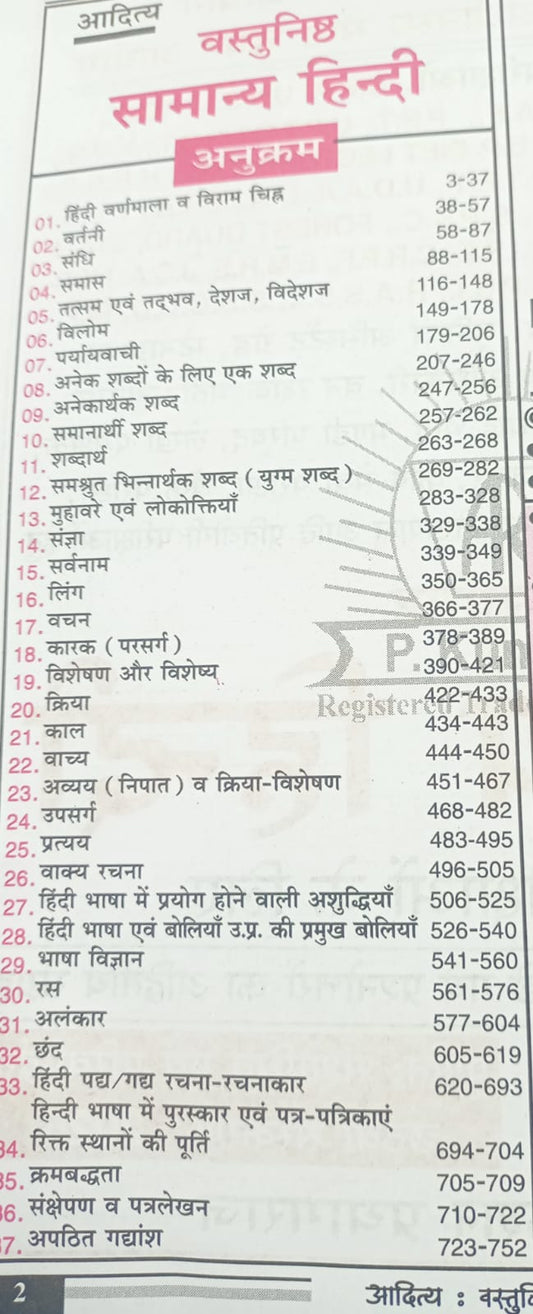 आदित्य
वस्तुनिष्ठ
सामान्य हिन्दी
अनुक्रम
01. हिंदी वर्णमाला व विराम चिह्न 3-37
02. वर्तनी 38-57
03. संधि 58-87
04. समास 88-115
05. तत्सम एवं तद्भव, देशज, विदेशज 116-148
06. विलोम 149-178
07. पर्यायवाची 179-206
08. अनेक शब्दों के लिए एक शब्द 207-246
09. अनेकार्थक शब्द 247-256
10. समानार्थी शब्द 257-262
11. शब्दार्थ 263-268
12. समश्रुत भिन्नार्थक शब्द ( युग्म शब्द ) 269-282
13. मुहावरे एवं लोकोक्तियाँ 283-328
14. संज्ञा 329-338
15. सर्वनाम 339-349
16. लिंग 350-365
17. वचन 366-377
18. कारक ( परसर्ग ) 378-389
19. विशेषण और विशेष्य 390-421
20. क्रिया 422-433
21. काल 434-443
22. वाच्य 444-450
23. अव्यय ( निपात ) व क्रिया-विशेषण 451-467
24. उपसर्ग 468-482
25. प्रत्यय 483-495
26. वाक्य रचना 496-505
27. हिंदी भाषा में प्रयोग होने वाली अशुद्धियाँ 506-525
28. हिंदी भाषा एवं बोलियाँ उ.प्र. की प्रमुख बोलियाँ 526-540
29. भाषा विज्ञान 541-560
30. रस 561-576
31. अलंकार 577-604
32. छंद 605-619
33. हिंदी पद्य/गद्य रचना-रचनाकार 620-693
हिन्दी भाषा में पुरस्कार एवं पत्र-पत्रिकाएं
34. रिक्त स्थानों की पूर्ति 694-704
35. क्रमबद्धता 705-709
36. संक्षेपण व पत्रलेखन 710-722
37. अपठित गद्यांश 723-752
P.
Registered
2 आदित्य :